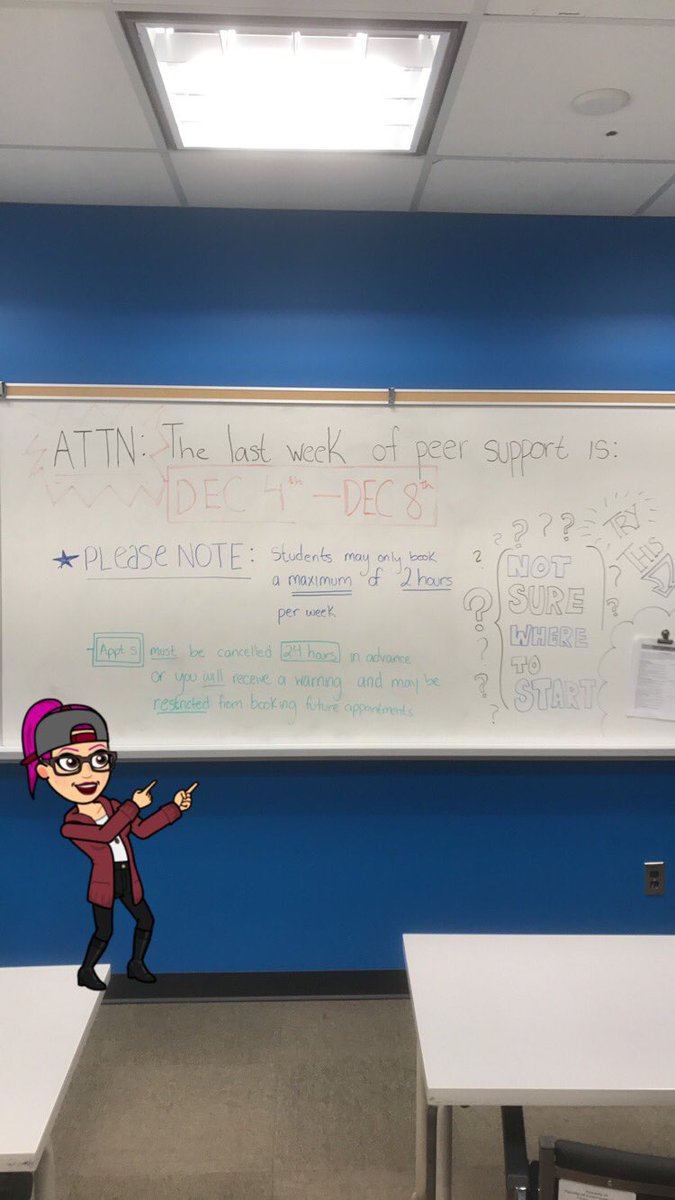 ATTN: The last week of peer support is:
DEC 4th — DEC 8th
★ PLEASE NOTE: Students may only book
a maximum of 2 hours
per week
- Appt s must be cancelled 24 hours in advance
or you will receive a warning and may be
restricted from booking future appointments
? ? ? ? ? ? ? ? ? ? ?
NOT
SURE
WHERE
TO
START
TRY
THIS